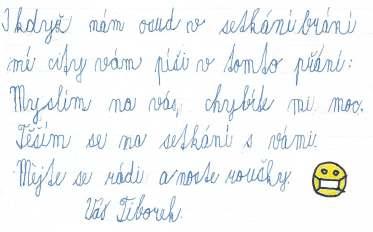 I když nám osud v setkání brání
mé city vám píši v tomto přání:
Myslím na vás, chybíte mi moc.
Těším se na setkání s vámi.
Mějte se rádi a noste roušky.
Váš Tiborek.